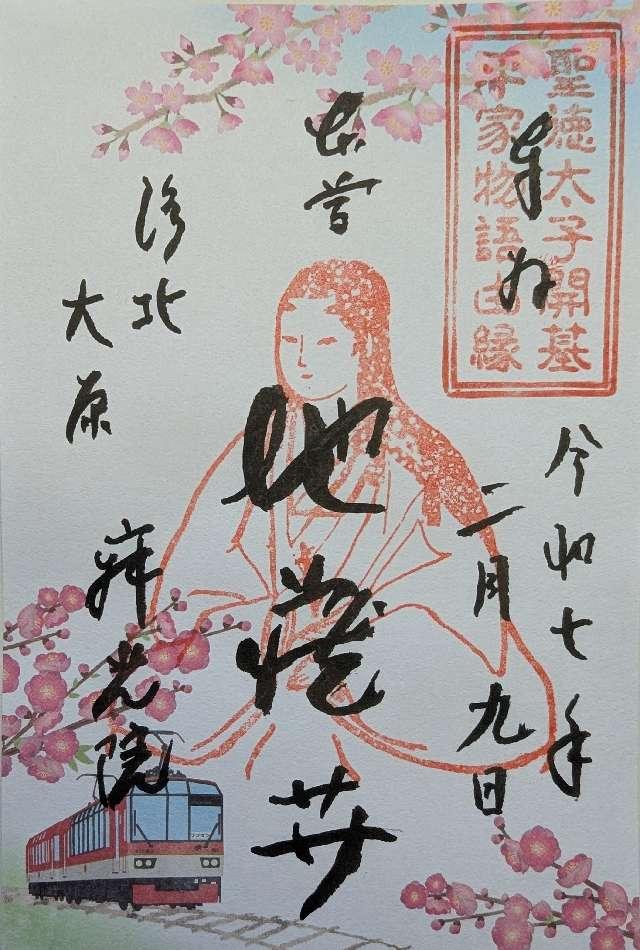 聖徳太子開基
平家物語由縁
奉拝
令和七年
二月九日
本尊
地蔵𦬇
洛北
大原
寂光院